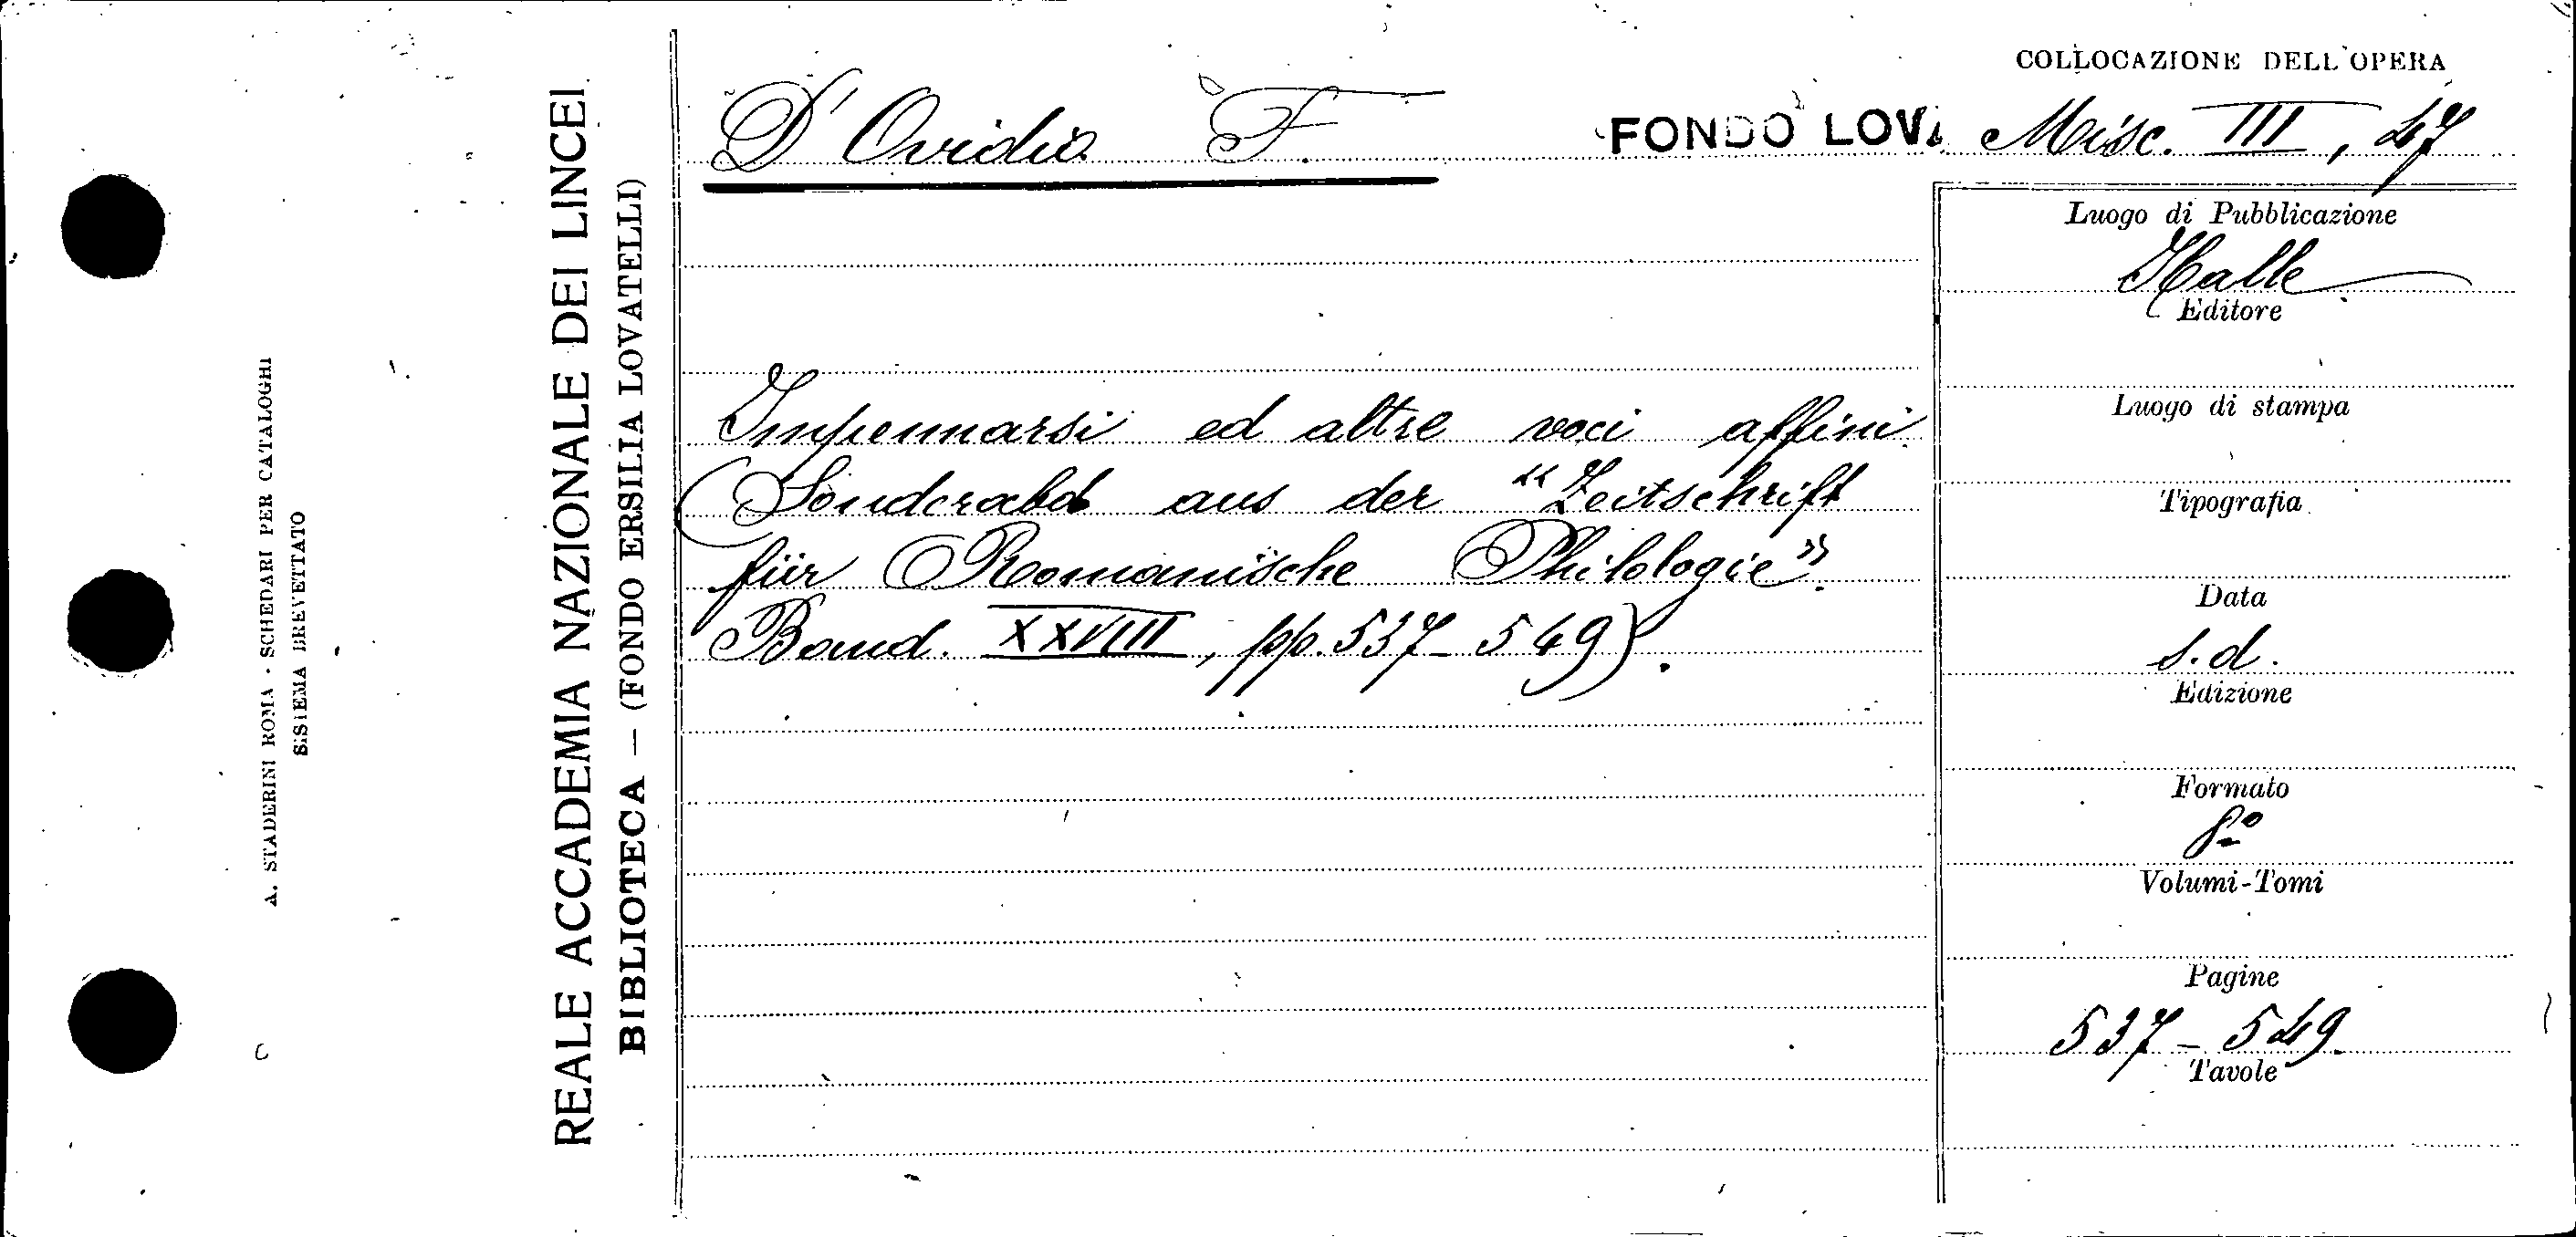 COLLOCAZIONE DELL'OPERA
D'Ovidio F.
FONDO LOVA Misc. III, 47
Luogo di Pubblicazione
Halle
Editore
Luogo di stampa
Tipografia
Data
s.d.
Edizione
Formato
8º
Volumi-Tomi
Pagine
537-549.
Tavole
Impennarsi ed altre voci affini.
(Sonderabd aus der "Zeitschrift
für Romanische Philologie".
Band. XXVIII, pp. 537-549).
REALE ACCADEMIA NAZIONALE DEI LINCEI
BIBLIOTECA — (FONDO ERSILIA LOVATELLI)
A. STADERINI ROMA - SCHEDARI PER CATALOGHI
SISTEMA BREVETTATO